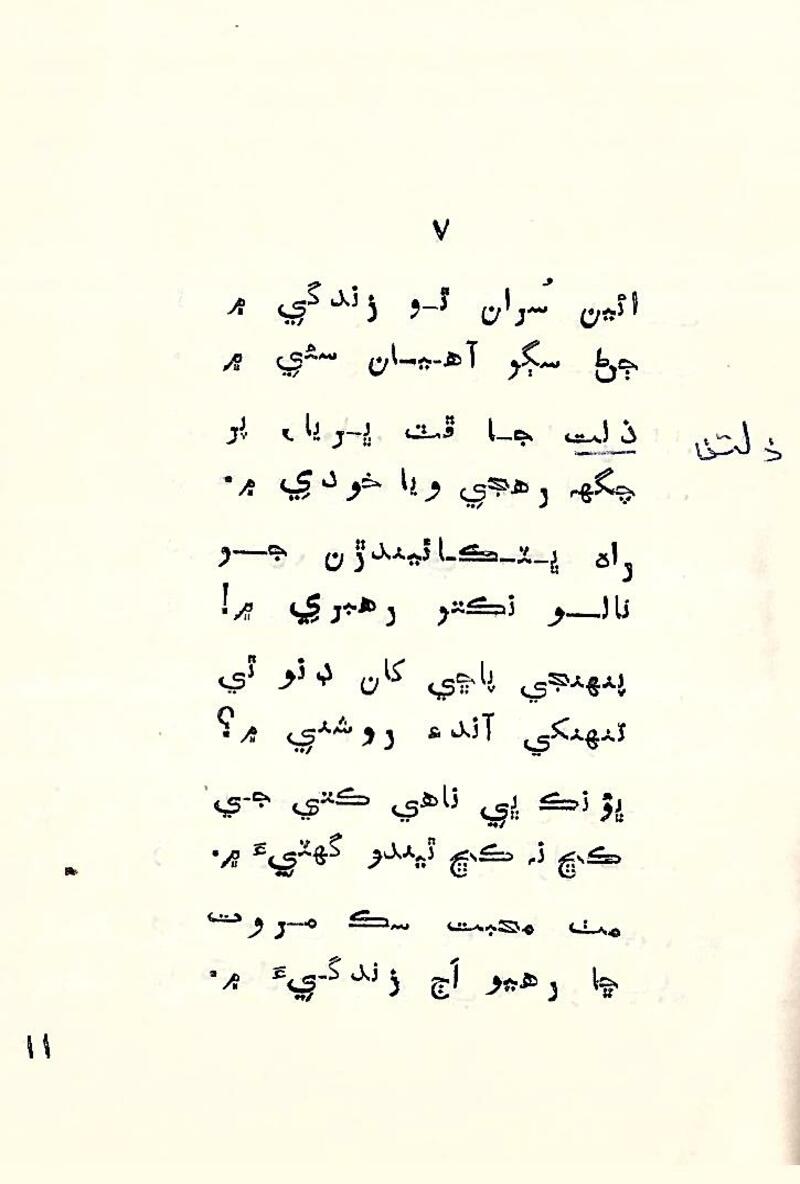 ۷
ائين سُران ٿو زندگي ۾
ڄڻ سڳو آهيان سئي ۾
ذلت جا ڦٽ ڀريا، پر
ذلتن
چگهه رهجي ويا خودي ۾.
راه ڀٽڪائيندڙن جو
نالو نڪتو رهبري ۾!
پنهنجي پاڇي کان ڊنو ٿي
تنهنکي آندء روشني ۾؟
ڀؤنڪ ڀي ناهي ڪتي جي
ڪڇ نہ ڪڇ ٿيندو گهٽيءَ ۾.
مٺ محبت سڪ مروت
ڇا رهيو اَڄ زندگيءَ ۾.
۱۱